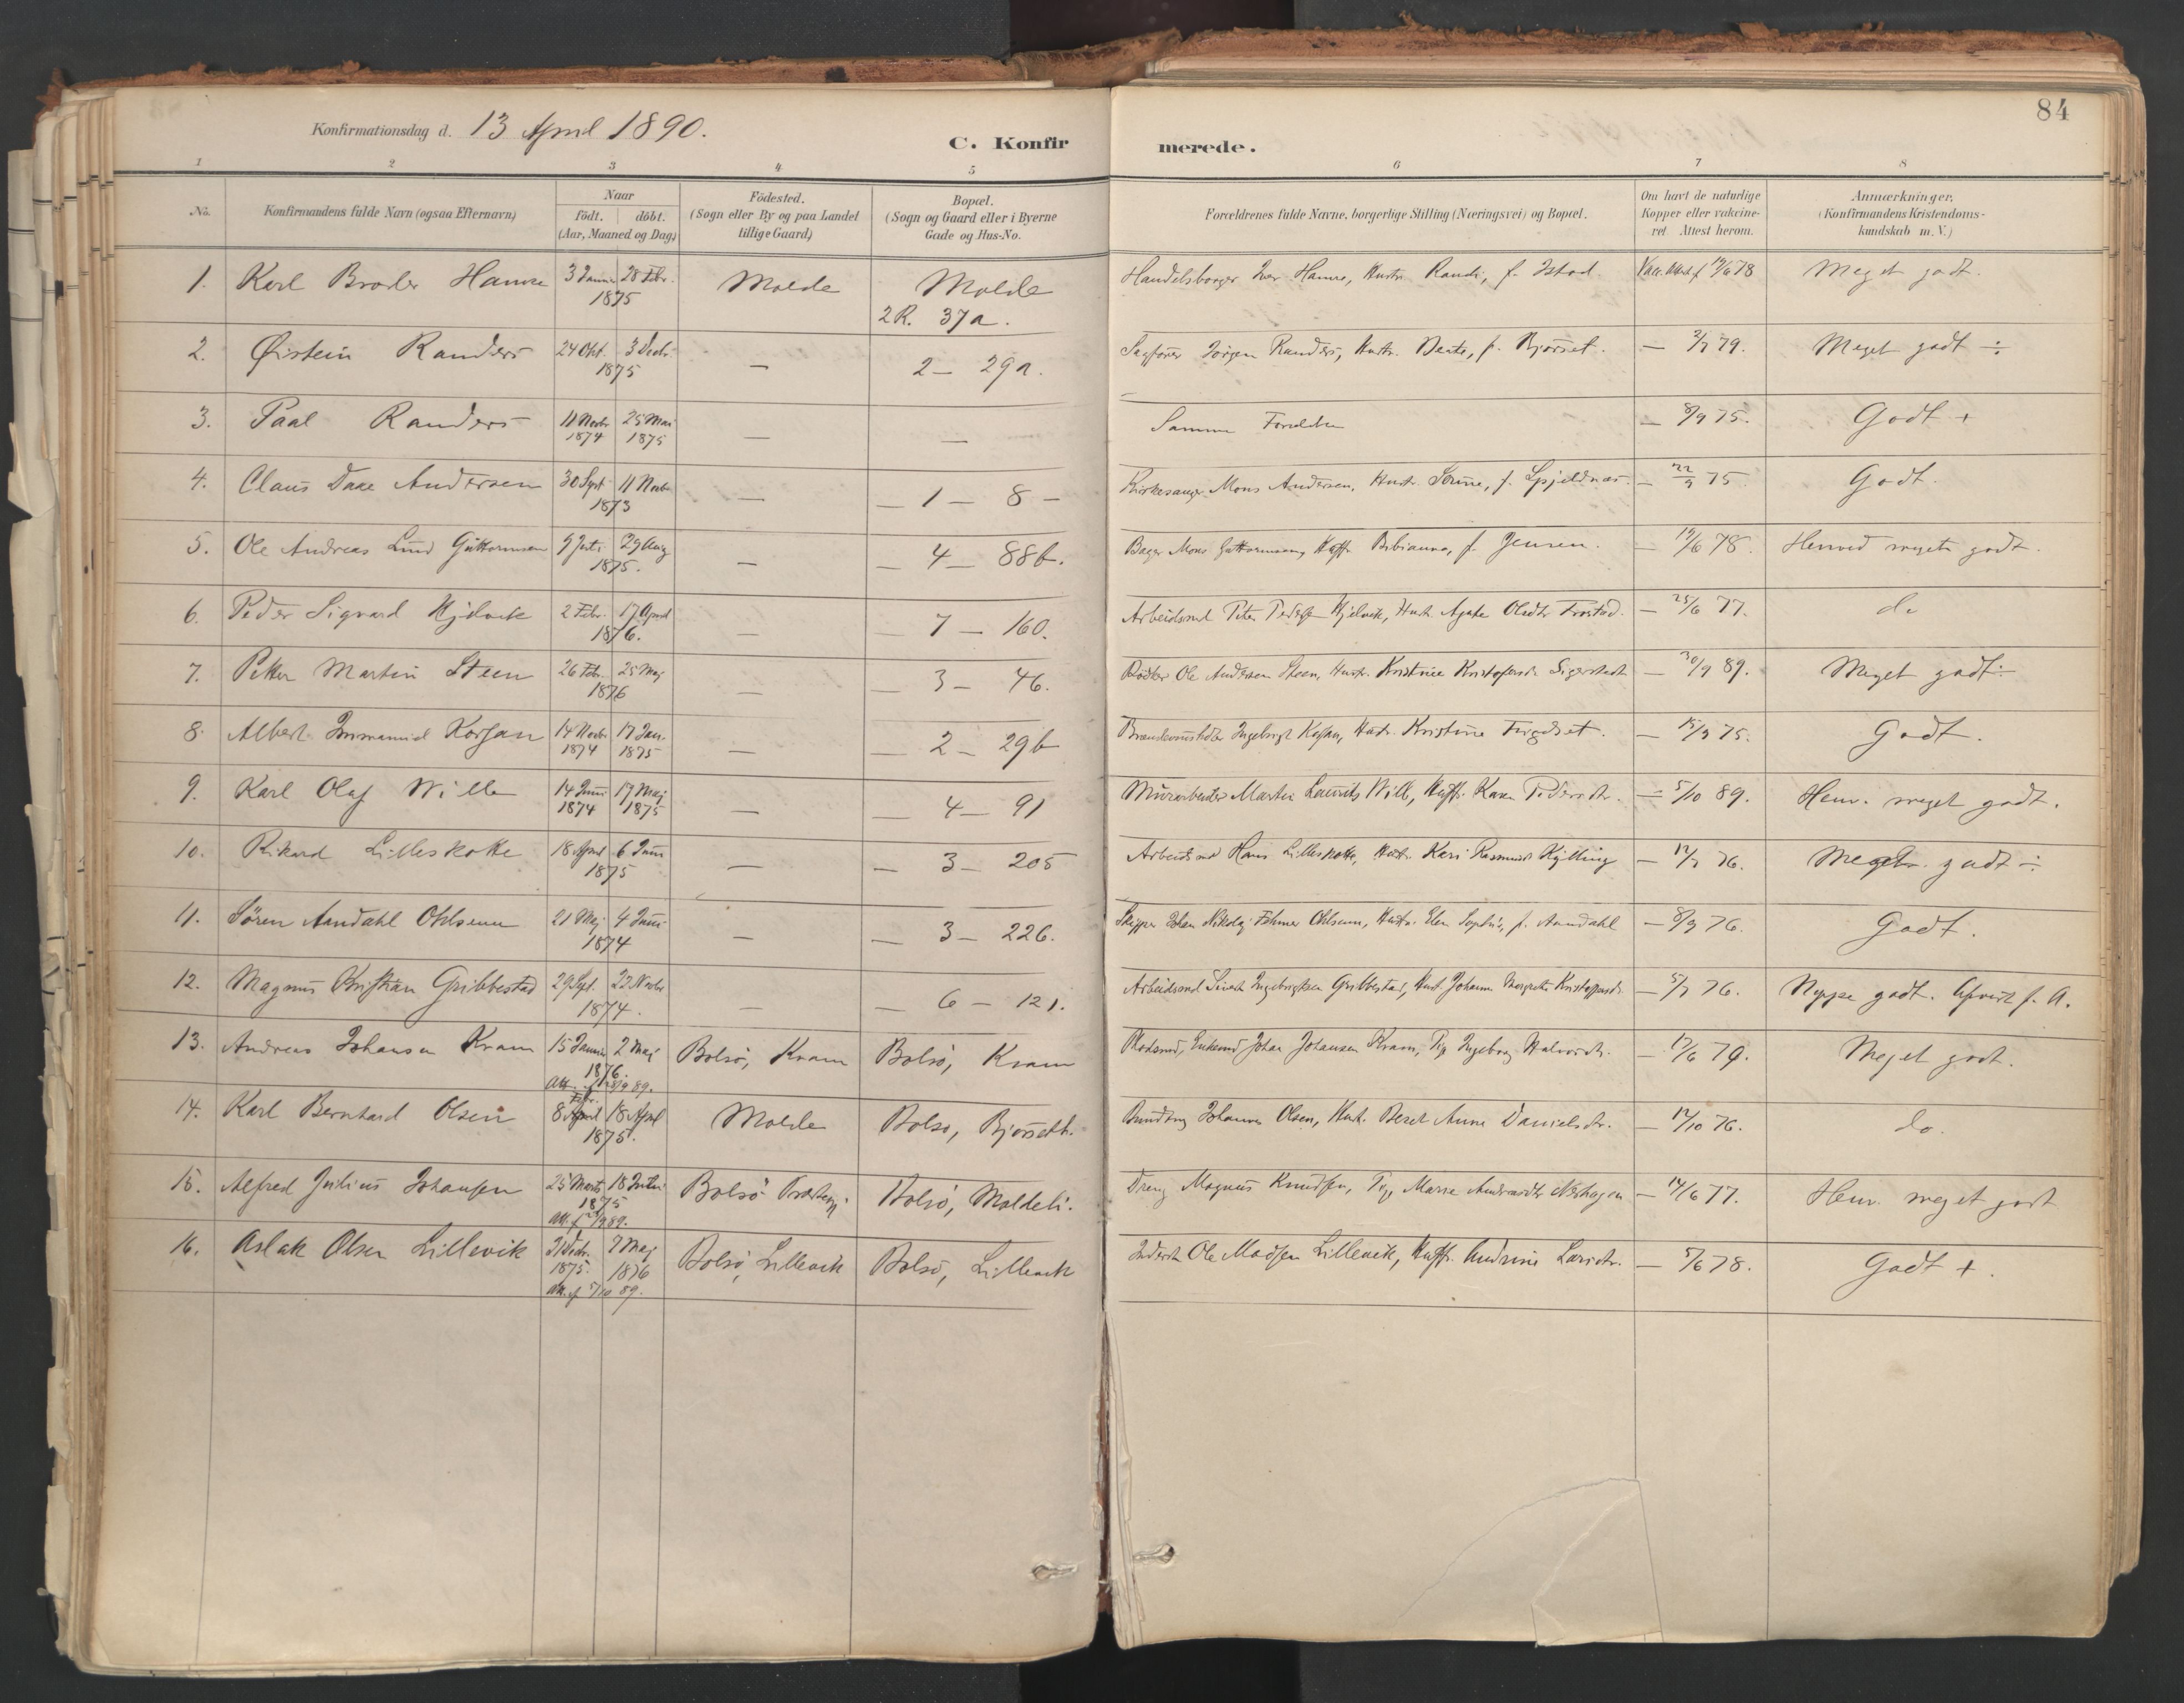 84
Konfirmationsdag d. 13 April 1890.
C. Konfirmerede.
1 2 3 4 5 6 7 8
No.
Konfirmandens fulde Navn (ogsaa Efternavn)
Naar
födt. döbt.
(Aar, Maaned og Dag)
Födested.
(Sogn eller By og paa Landet
tillige Gaard)
Bopæl.
(Sogn og Gaard eller i Byerne
Gade og Hus-No.
Forældrenes fulde Navne, borgerlige Stilling (Næringsvei) og Bopæl.
Om havt de naturlige
Kopper eller vaccine-
ret Attest herom.
Anmærkninger.
(Konfirmandens Kristendoms-
kundskab m. V.)
1. Karl Broder Hamre 3 Januar 28 Febr. 1875 Molde Molde 2R. 37a. Handelsborger Iver Hamre, Hustr. Randi, f. Istad. Vacc. Attest f. 19/6 78 Meget godt.
2. Øistein Randers 24 Okt. 3 Decbr. 1875 — 2 — 29a. Sagfører Jörgen Randers, Hustr. Berte, f. Bjørset. — 3/7 79. Meget godt ÷
3. Paal Randers 11 Novbr 1874 25 Mai 1875 — — Samme Forældre — 8/9 75. Godt +
4. Claus Daae Andersen 30 Sept 11 Novbr 1873 — — 1 — 8 — Kirkesanger Mons Andersen, Hustr. f. Spjeldnæs. — 22/9 75 Godt.
5. Ole Andreas Lund Guttormsen 9 29 Aug 1875. — — 4 — 88b. Bager Mons Guttormsen, Hustr. Bibiana, f. Jensen. — 19/6 78. Henved meget godt.
6. Peder Sigvard Hjelvik 2 Febr. 17 April 1876. — — 7 — 160. Arbeidsmd Peter Peders. Hjelvik, Hustr. Agate Olsdtr Frostad. — 25/6 77. do
7. Petter Martin Steen 26 Feb. 25 Maj 1876 — — 3 — 46. Bødker Ole Andersen Steen, Hustr. Kristine Kristofersdr. — 30/9 89. Meget godt ÷
8. Albert Immanuel Korsan 14 Novbr 1874 17 Jan. 1875 — — 2 — 29b Ingebrigt Hustr. Kristine — 15/9 75. Godt.
9. Karl Olaf Wille 14 Juni 1874 17 Maj 1875 — — 4 — 91 Murarbeider Martin Laurits Wille, Hustr. Karen Pedersdtr. — 5/10 89. Henv. meget godt.
10. Rikard Lilleskotte 18 April 6 Juni 1875 — — 3 — 205 Arbeidsmd Hans Lilleskotte, Hustr. Kari Rasmusdr Kylling — 12/7 76. Meget godt ÷
11. Sören Aandahl Ohlsenn 21 Maj 4 Juni 1874 — — 3 — 226. Skipper Johan Nikolaj Ohlsenn, Hustr. Elen Sophie, f. Aandahl — 8/9 76. Godt.
12. Magnus Kristian Gribbestad 29 Sept. 22 Novbr 1874. — — 6 — 121. Arbeidsmd Sivert Ingebrigtsen Gribbestad, Hust. Johanne Margrethe Kristoffersdr. — 5/7 76. Neppe godt.
13. Andreas Johansen Kram 15 Januar 2 Maj 1876. Att. f. 28/9 89. Bolsö, Kram Bolsö, Kram Enkemd Johan Johansen Kram, Pig. Ingeborg Halvorsdr. — 17/6 79. Meget godt.
14. Karl Bernhard Olsen 8 April Febr. 18 April 1875. Molde Bolsö, Bjørseth. Johannes Olsen, Hust. Beret Anne Danielsdr. — 12/10 76. do.
15. Alfred Julius Johansen 25 Marts 18 Juli 1875 Att. f. 29/9 89. Bolsö Bolsö, Moldeli. Dreng Magnus Knudsen, Pig. Marie — 14/6 77. Henv. meget godt
16. Aslak Olsen Lillevik 31 Decbr. 1875. 7 Maj 1876 Att. af 5/10 89. Bolsö, Lillevik Bolsö, Lillevik Inderst Ole Madsen Lillevik, Hustr. Andrine Larsdtr. — 5/6 78. Godt +.